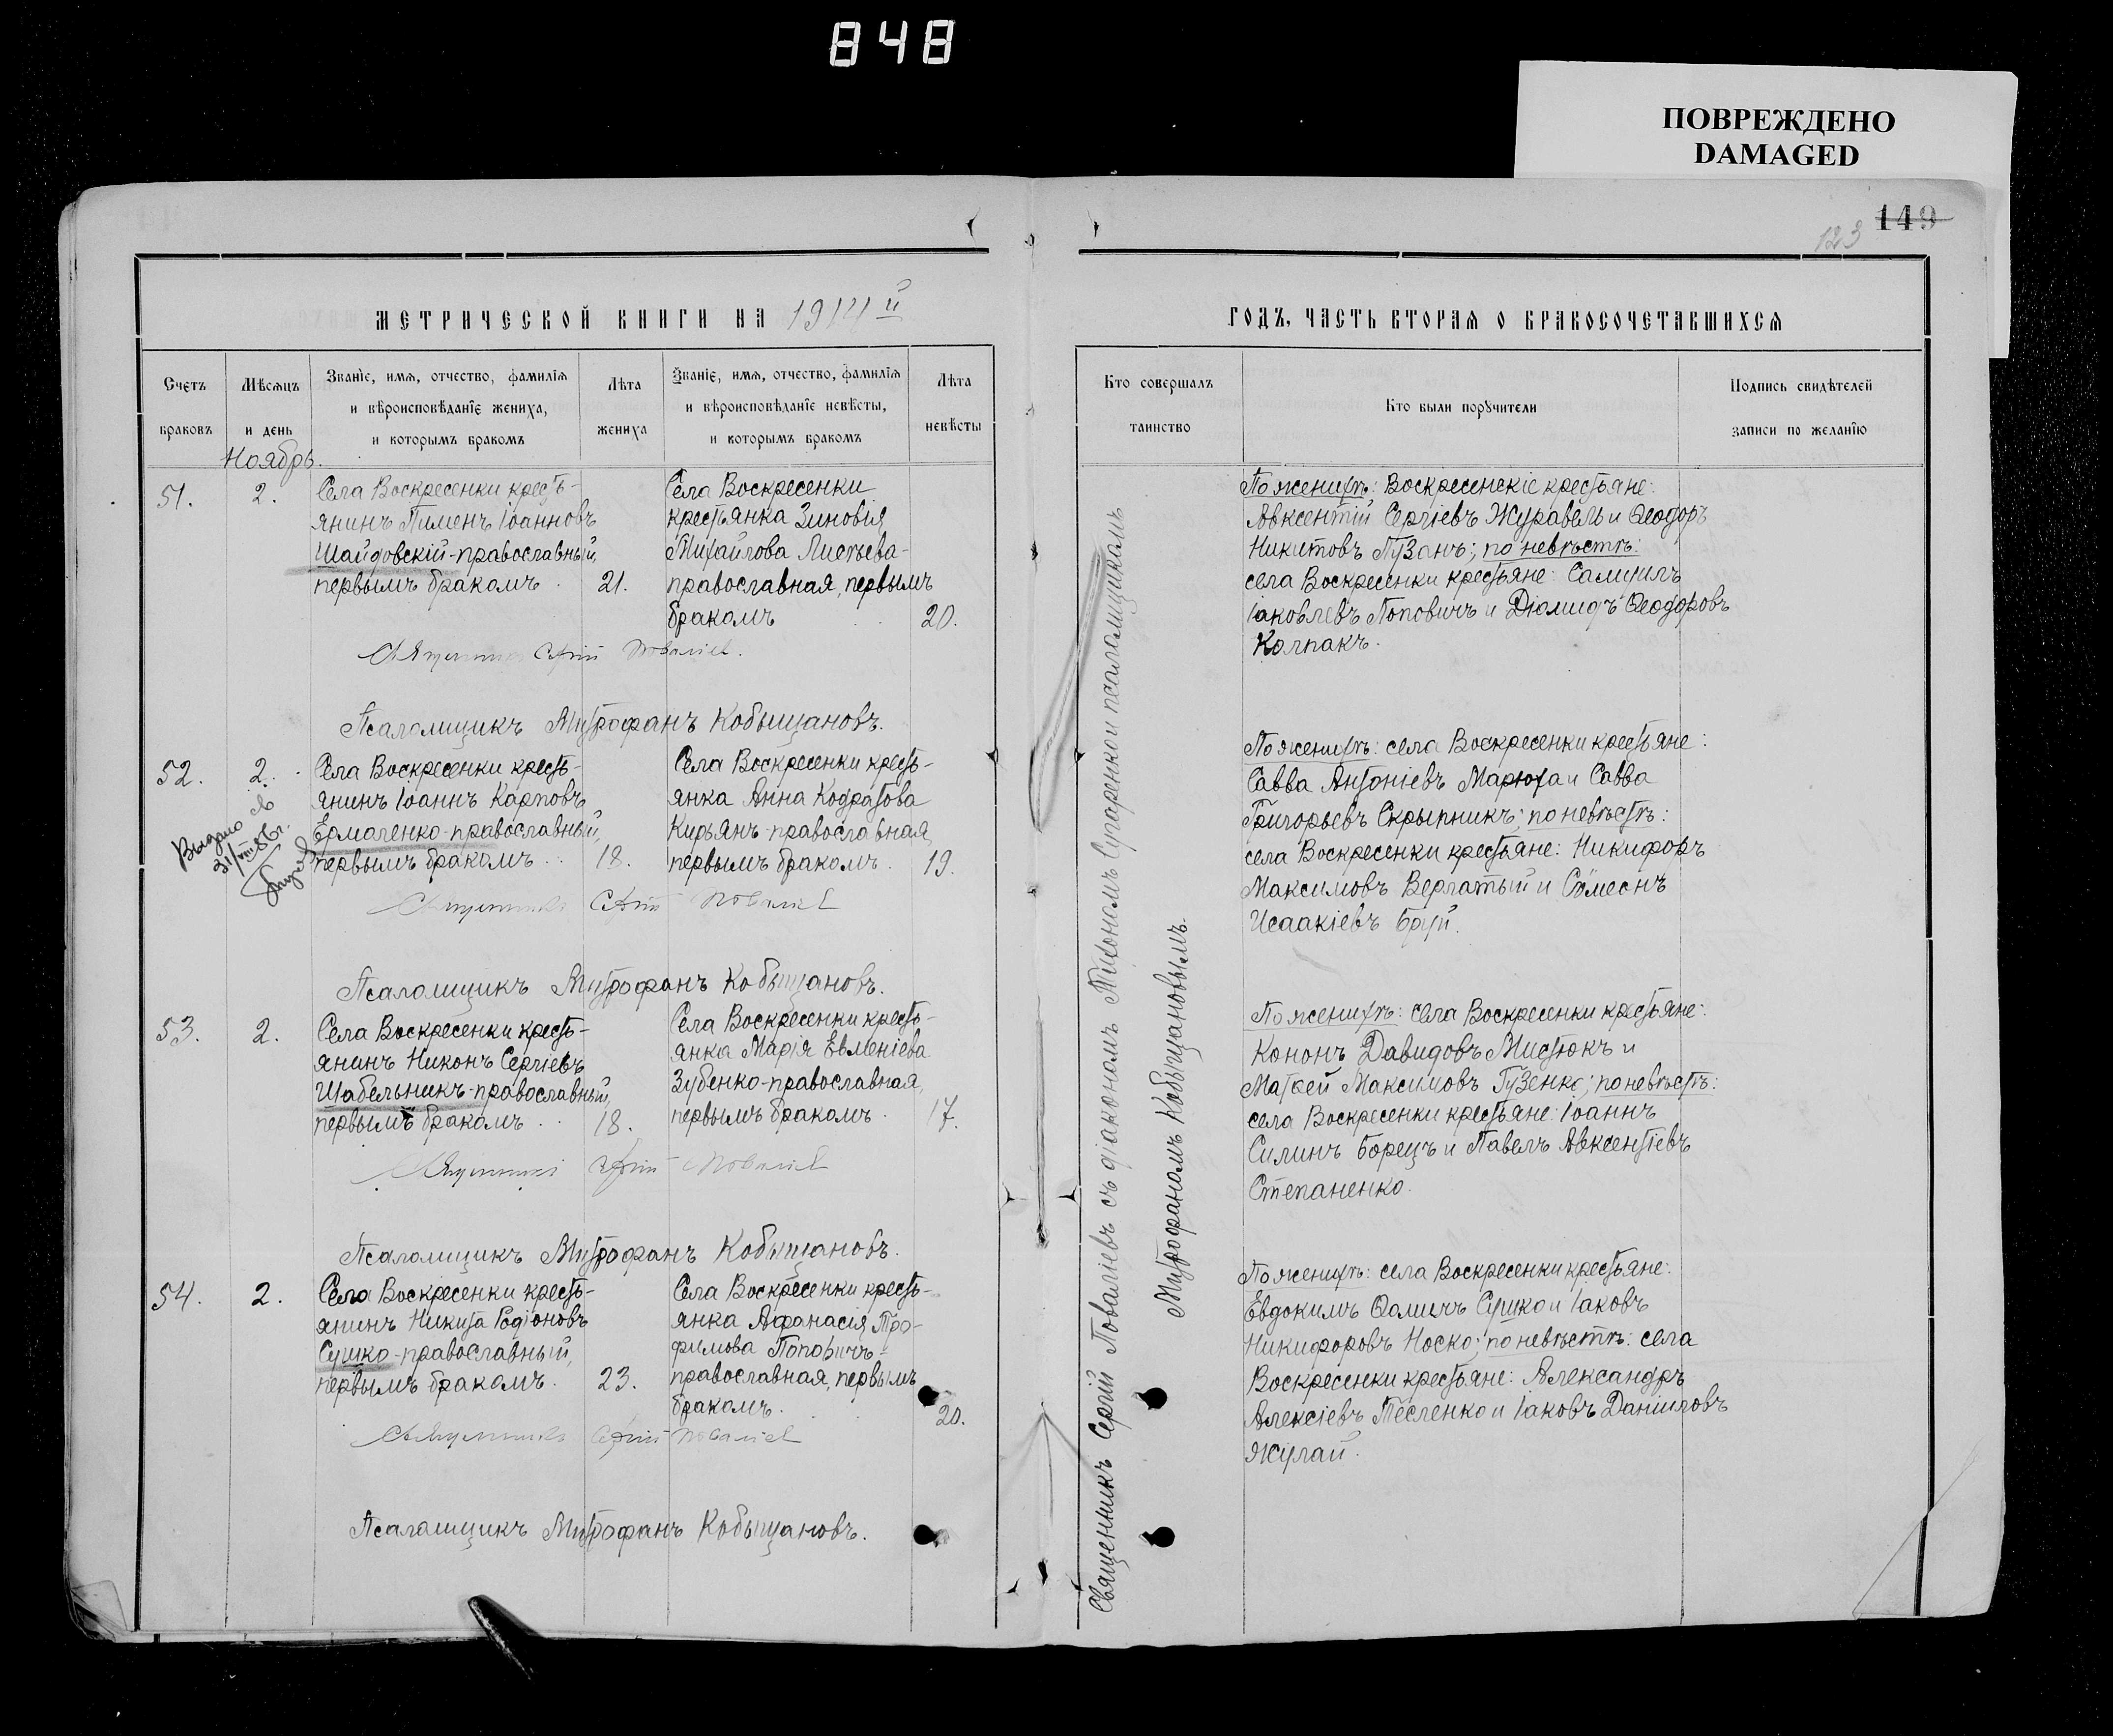 848
ПОВРЕЖДЕНО
DAMAGED
149
123
МЕТРИЧЕСКОЙ КНИГИ НА 1914й
Счетъ браковъ
Мѣсяцъ и день
Званіе, имя, отчество, фамилія
и вѣроисповѣданіе жениха,
и которымъ бракомъ
Лѣта жениха
Званіе, имя, отчество, фамилія
и вѣроисповѣданіе невѣсты,
и которымъ бракомъ
Лѣта невѣсты
Ноябрь.
51.
2.
Села Воскресенки кресть-
янинъ Пименъ Іоанновъ
Шайдовскій-православный,
первымъ бракомъ
21.
Села Воскресенки
крестьянка Зиновія
Михайлова
православная, первымъ
бракомъ
20.
Сергій
Псаломщикъ Митрофанъ Кобыщановъ.
52.
2.
Выдано св
31/VIII 86г.
Села Воскресенки кресть-
янинъ Іоаннъ Карповъ
Ермоленко-православный,
первымъ бракомъ
18.
Села Воскресенки кресть-
янка Анна Кодратова
Кирьянъ-православная
первымъ бракомъ.
19.
Псаломщикъ Митрофанъ Кобыщановъ.
53.
2.
Села Воскресенки кресть-
янинъ Никонъ Сергіевъ
Шабельникъ-православный,
первымъ бракомъ
18.
Села Воскресенки кресть-
янка Марія Евменіева
Зубенко-православная,
первымъ бракомъ.
17.
Псаломщикъ Митрофанъ Кобыщановъ.
54.
2.
Села Воскресенки кресть-
янинъ Никита Родіоновъ
Сушко-православный,
первымъ бракомъ.
23.
Села Воскресенки кресть-
янка Афанасія Тро-
фимова Поповичъ-
православная, первымъ
бракомъ.
20.
Псаломщикъ Митрофанъ Кобыщановъ.
ГОДЪ, ЧАСТЬ ВТОРАЯ О БРАКОСОЧЕТАВШИХСЯ
Кто совершалъ
таинство
Кто были поручители
Подпись свидѣтелей
записи по желанію
Священникъ Сергій Повалiевъ съ діакономъ Тихономъ и псаломщикомъ
Митрофаномъ Кобыщановымъ.
По женихѣ: Воскресенскіе крестьяне:
Авксентій Сергіевъ Журавель и Ѳеодоръ
Никитовъ Гузанъ; по невѣстѣ:
села Воскресенки крестьяне: Самуилъ
Іаковлевъ Поповичъ и Діомидъ Ѳеодоровъ
Колпакъ.
По женихѣ: села Воскресенки крестьяне:
Савва Антоніевъ Марюха и Савва
Григорьевъ Скрыпникъ; по невѣстѣ:
села Воскресенки крестьяне: Никифоръ
Максимовъ Верлатый и Сѵмеонъ
Исаакіевъ
По женихѣ: села Воскресенки крестьяне:
Кононъ Давидовъ Мистюкъ и
Матѳей Максимовъ Гузенко; по невѣстѣ:
села Воскресенки крестьяне: Іоаннъ
Силинъ Борецъ и Павелъ Авксентіевъ
Степаненко.
По женихѣ: села Воскресенки крестьяне:
Евдокимъ Ѳоминъ Сушко и Іаковъ
Никифоровъ Носко; по невѣстѣ: села
Воскресенки крестьяне: Александръ
Алексіевъ Тесленко и Іаковъ Даніиловъ
Жулай.